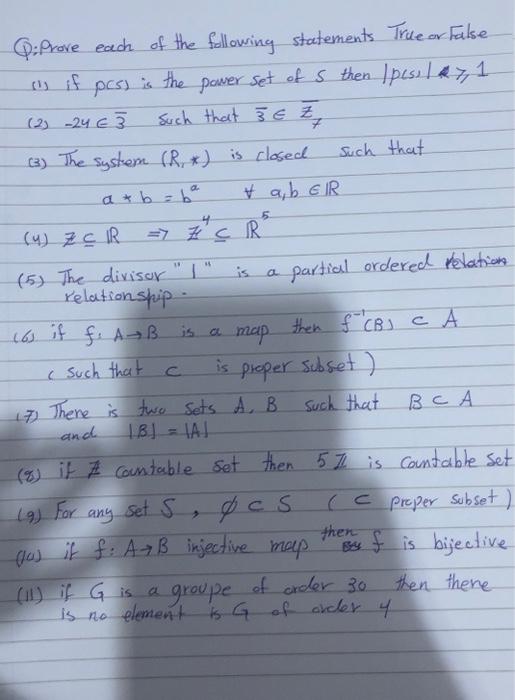 Q: Prove each of the following statements True or False
(1) if p(s) is the power set of S then |p(s)| ⩾ 1
(2) -24 ∈ 3̄ such that 3̄ ∈ Z̄₇
(3) The system (R, *) is closed such that
a * b = bᵃ ∀ a,b ∈ ℝ
(4) Z ⊆ ℝ => Z⁴ ⊆ ℝ⁵
(5) The divisor "|" is a partial ordered relation
relationship.
(6) if f: A→B is a map then f⁻¹(B) ⊂ A
( such that ⊂ is proper subset )
(7) There is two sets A, B such that B ⊂ A
and |B| = |A|
(8) if Z countable set then 5Z is countable set
(9) For any set S, ∅ ⊂ S ( ⊂ proper subset )
(10) if f: A→B injective map then f is bijective
(11) if G is a groupe of order 30 then there
is no element is G of order 4